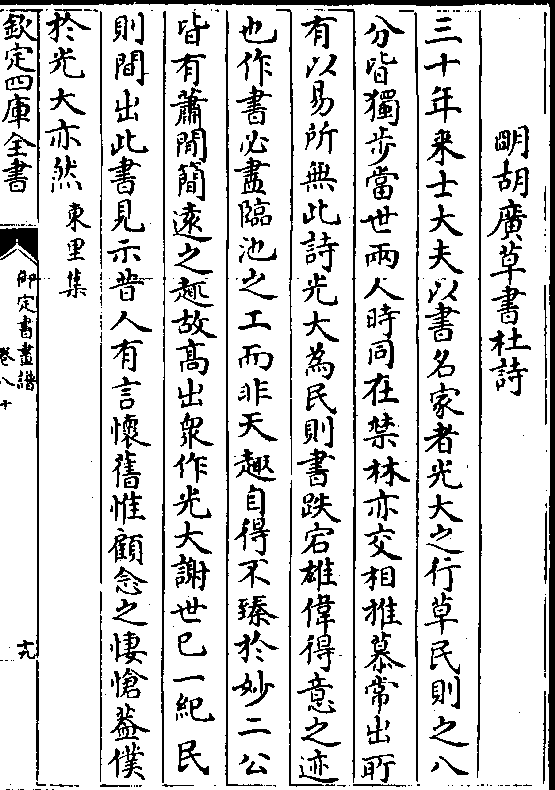 明胡廣草書杜詩
三十年来士大夫以書名家者光大之行草民則之八
分皆獨步當世兩人時同在禁林亦交相推慕常出所
有以易所無此詩光大為民則書跌宕雄偉得意之迹
也作書必盡臨池之工而非天趣自得不臻於妙二公
皆有蕭閒簡遠之趣故髙出衆作光大謝世已一紀民
則間出此書見示昔人有言懷舊惟顧念之悽愴葢僕
於光大亦然 東里集
欽定四庫全書
御定書畫譜
卷八十
十九